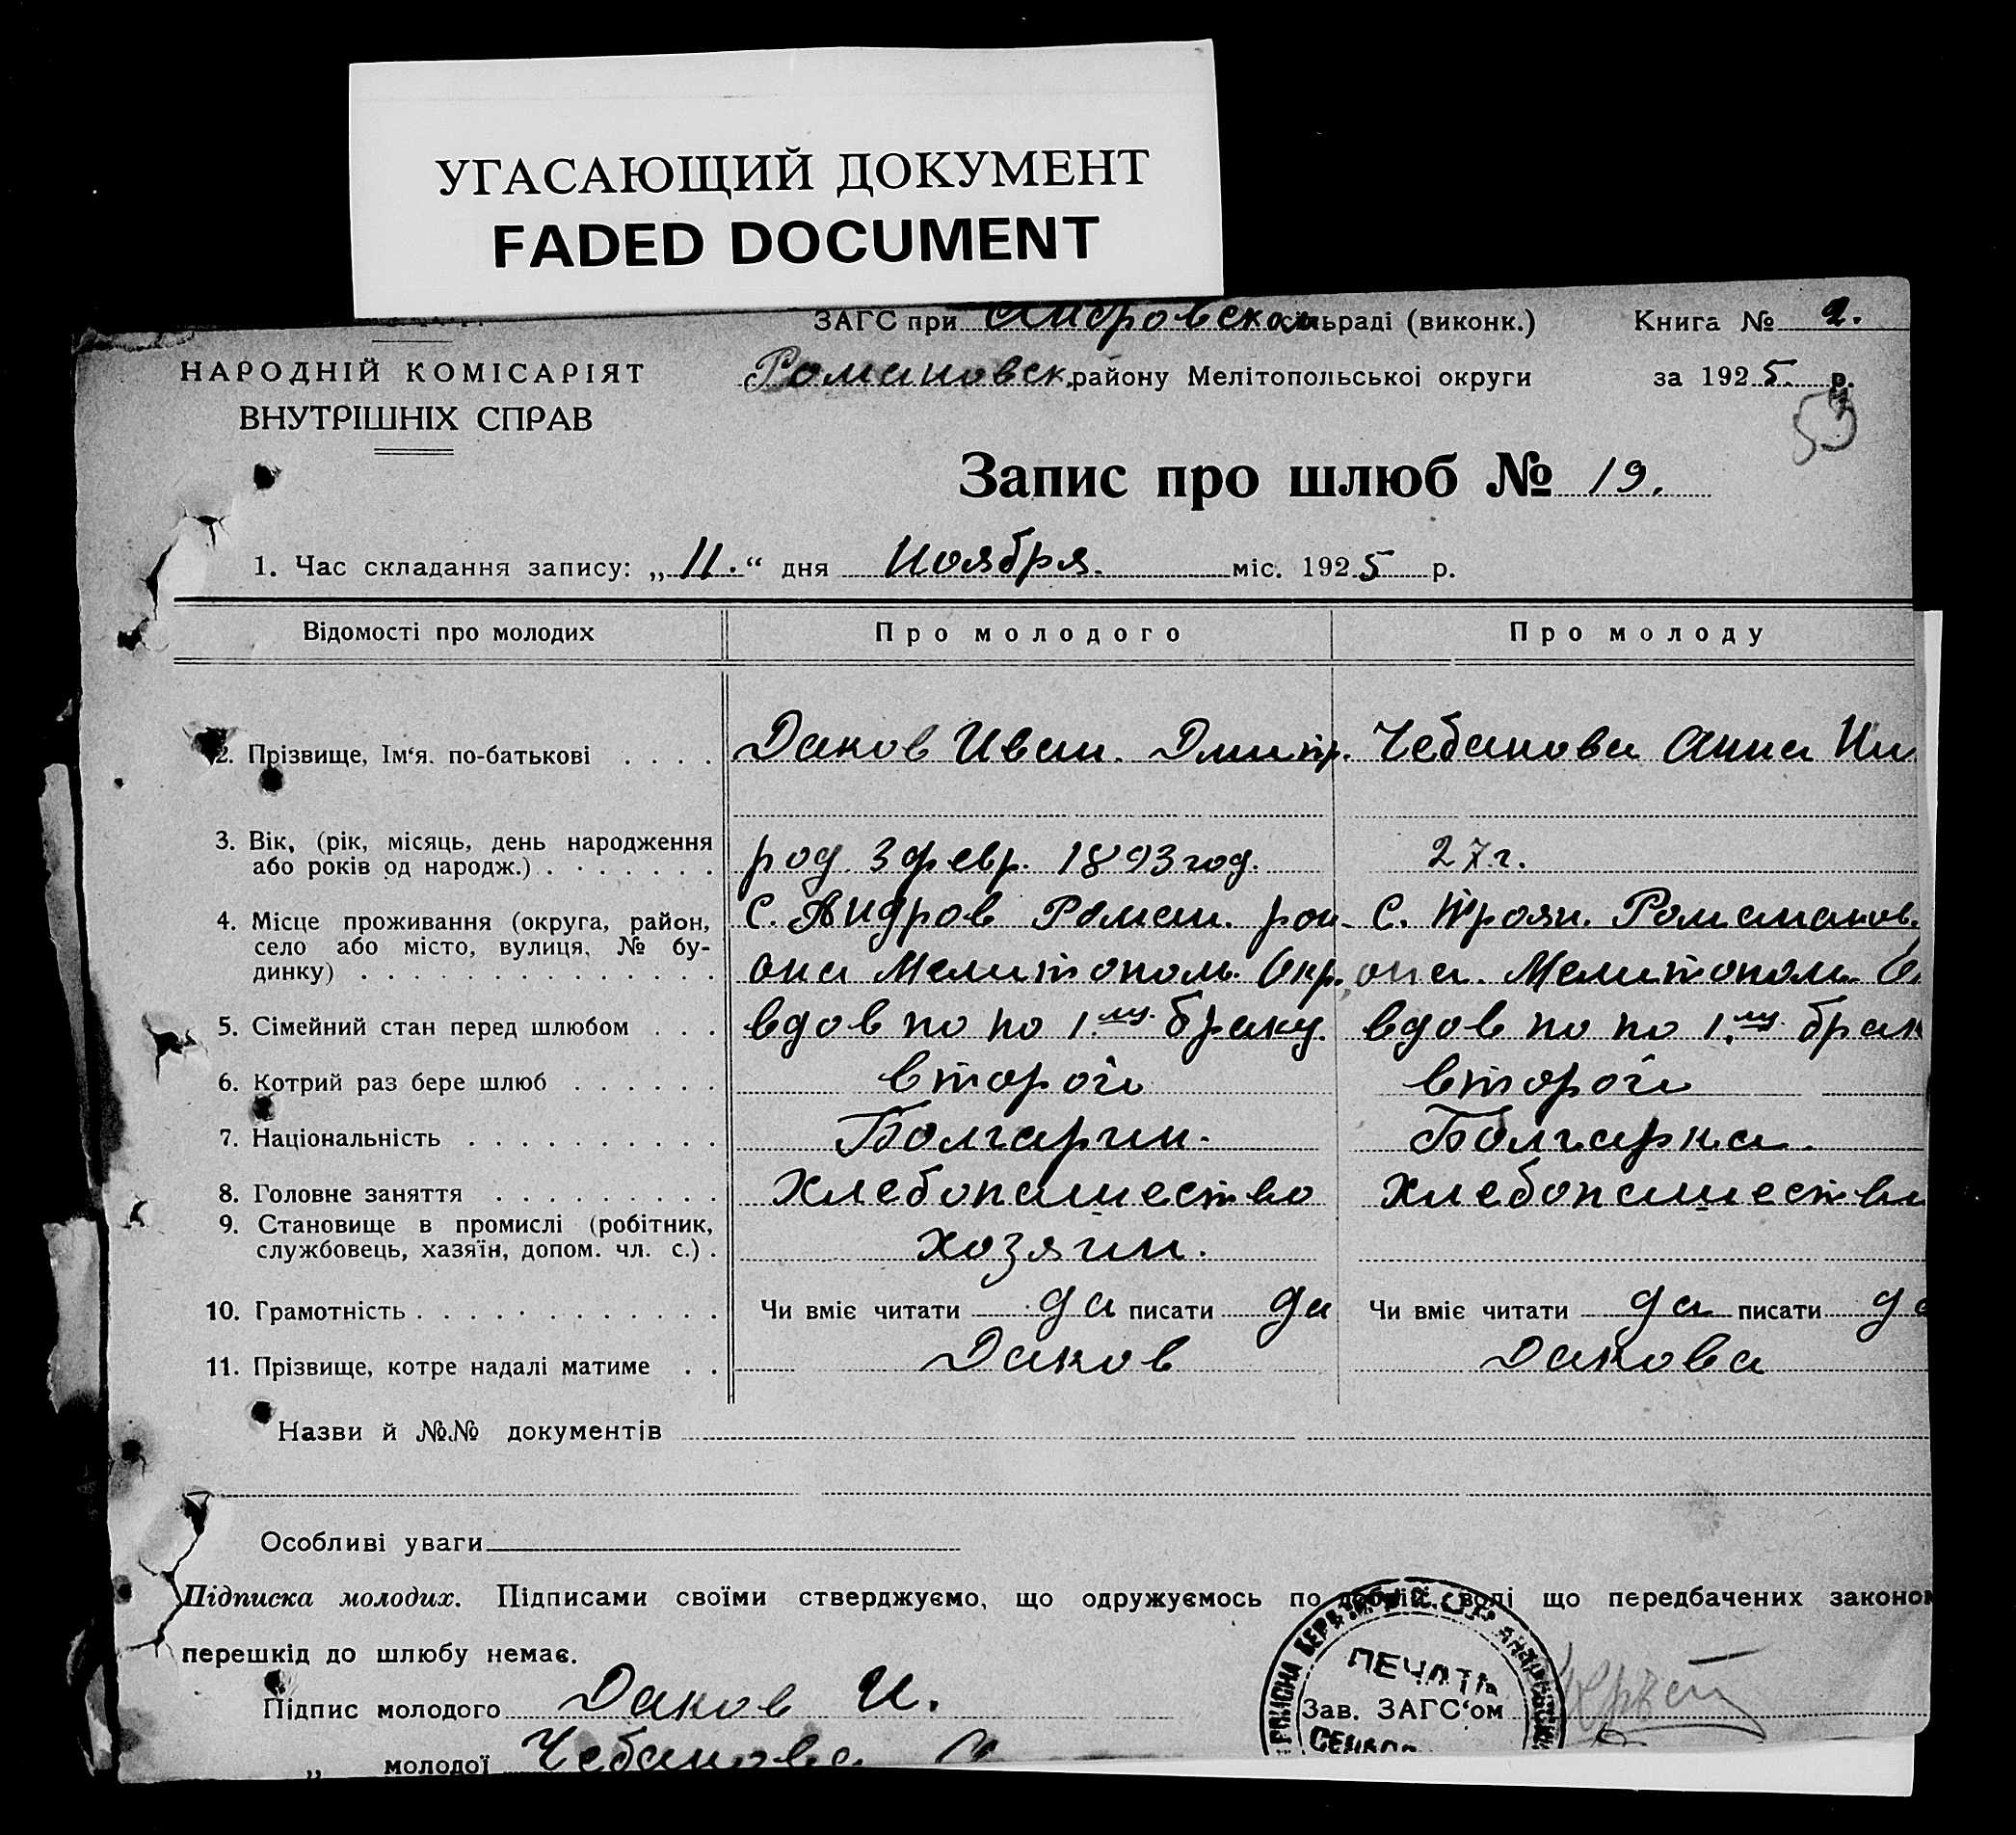 УГАСАЮЩИЙ ДОКУМЕНТ
FADED DOCUMENT
ЗАГС при Андровском сільраді (виконк.) Книга № 2.
НАРОДНІЙ КОМІСАРІЯТ
ВНУТРІШНІХ СПРАВ
Романовск. району Мелітопольської округи за 1925 р.
Запис про шлюб № 19.
1. Час складання запису: „11.“ дня Ноября. міс. 1925 р.
Відомості про молодих Про молодого Про молоду
2. Прізвище, Ім‘я. по-батькові . . . . Даков Иван. Дмитр. Чебанова Анна Ни
3. Вік, (рік, місяць, день народження
або років од народж.) . . . . . . . род. 3 февр. 1893 год. 27 г.
4. Місце проживання (округа, район, с. Андров Роман. рай- с. Троян. Романов.
село або місто, вулиця, № бу-
динку) . . . . . . . . . . . . . . она Мелитополь. Окр. она. Мелитопол. О
5. Сімейний стан перед шлюбом . . . вдов по по 1му. браку. вдов по по 1.му. брак
6. Котрий раз бере шлюб . . . . . . второй второй
7. Національність . . . . . . . . . . Болгарин. Болгарка.
8. Головне заняття . . . . . . . . . Хлебопашество Хлебопашество
9. Становище в промислі (робітник,
службовець, хазяїн, допом. чл. с.) . хозяин.
10. Грамотність . . . . . . . . . . . . Чи вміє читати да писати да Чи вміє читати да писати да
11. Прізвище, котре надалі матиме . . Даков Дакова
Назви й №№ документів
Особливі уваги
Підписка молодих. Підписами своїми стверджуємо, що одружуємось по добрій волі що передбачених законом
перешкід до шлюбу немає.
ПЕЧАТЬ
Підпис молодого Даков И. Зав. ЗАГС‘ом
„ молодої Чебанова